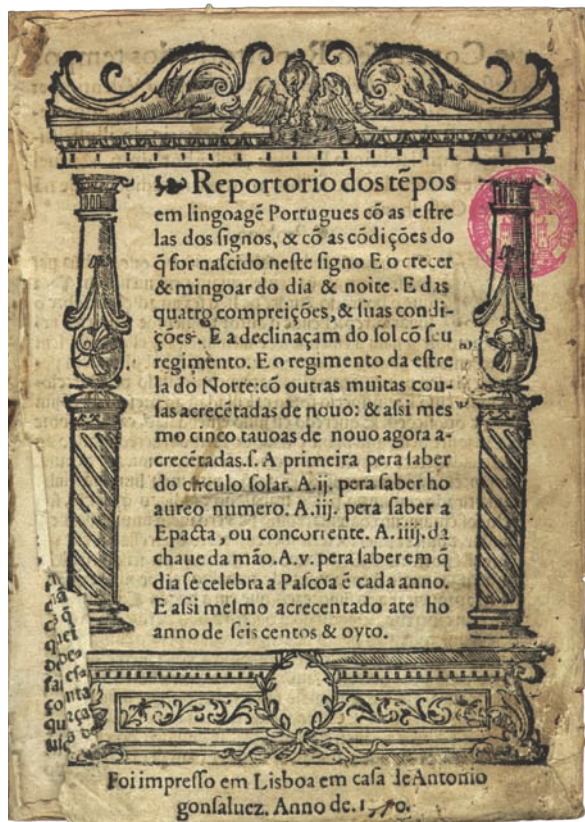 Reportorio dos tẽpos
em lingoagẽ Portugues cõ as estre
las dos signos, & cõ as cõdições do
q̃ for nascido neste signo E o crecer
& mingoar do dia & noite. E das
quatro compreições, & suas condi-
ções. E a declinaçam do sol cõ seu
regimento. E o regimento da estre
la do Norte: cõ outras muitas cou-
sas acrecẽtadas de nouo: & assi mes
mo cinco tauoas de nouo agora a-
crecẽtadas.s. A primeira pera saber
do circulo solar. A.ij. pera saber ho
aureo numero. A.iij. pera saber a
Epacta, ou concorrente. A.iiij. da
chaue da mão. A.v. pera saber em q̃
dia se celebra a Pascoa ẽ cada anno.
E assi mesmo acrecentado ate ho
anno de seis centos & oyto.
Foi impresso em Lisboa em casa de Antonio
gonsaluez. Anno de.